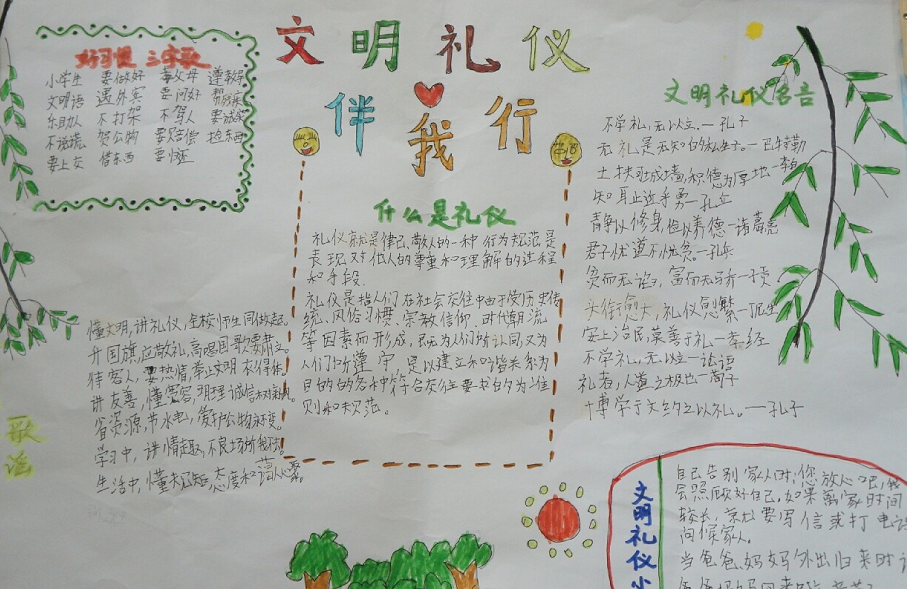 文明礼仪
伴我行
好习惯 三字歌
小学生 要做好 尊父母 遵教导
文明语 遇外宾 要问好
乐助人 不打架 不骂人 要诚实
不说谎 贺公物 要赔偿 拾东西
要上交 借东西 要归还
什么是礼仪
礼仪就是律己、敬人的一种行为规范是
表现对他人的尊重和理解的过程
和手段
礼仪是指人们在社会交往中由于受历史传
统、风俗习惯、宗教信仰、时代朝流
等因素而形成,既为人们所认同又为
人们所遵守,是以建立和谐关系为
目的的各种符合交往要求的为准
则和规范。
文明礼仪名言
不学礼,无以立。一孔子
无礼是无知的私生子。一巴特勒
土扶可成墙,积德为厚地一李白
知耻近乎勇一孔丘
静以修身,俭以养德一诸葛亮
君子忧道不忧贫。一孔丘
贫而无谄,富而无骄一子贡
头衔愈大,礼仪愈繁一
安上治民莫善于礼一孝经
不学礼,无以立一论语
礼者,人道之极也一荀子
博学于文约之以礼。一孔子
歌谣
懂文明,讲礼仪,全校师生同做起。
升国旗,应敬礼,高唱国歌要肃立。
待客人,要热情,举止文明
讲友善,懂宽容,明理诚信
省资源,节水电,爱护公物
学习中,讲情趣,不良场所我不去。
生活中,懂求知,态度和蔼
文明礼仪小
自己告别家人时,您放心吧,我
会照顾好自己。如果离家时间
较长,京尤要写信或打电话
问候家人。
当爸爸、妈妈外出归来时